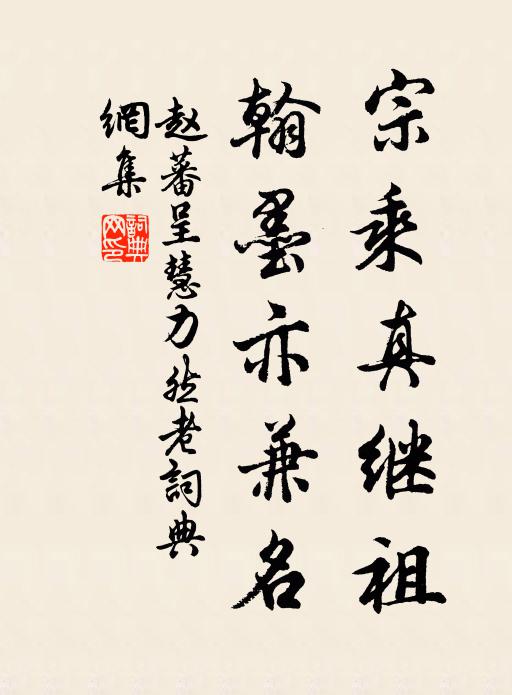 宗乘真继祖
翰墨亦兼名
赵蕃呈慧力然老詞典
網集
詞典网印